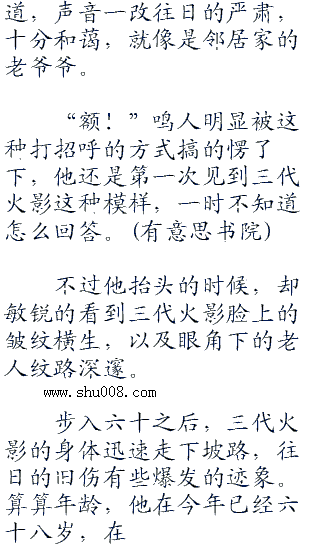 道，声音一改往日的严肃，
十分和蔼，就像是邻居家的
老爷爷。
“额！”鸣人明显被这
种打招呼的方式搞的愣了
下，他还是第一次见到三代
火影这种模样，一时不知道
怎么回答。(有意思书院)
不过他抬头的时候，却
敏锐的看到三代火影脸上的
皱纹横生，以及眼角下的老
人纹路深邃。
www.shu008.com
步入六十之后，三代火
影的身体迅速走下坡路，往
日的旧伤有些爆发的迹象。
算算年龄，他在今年已经六
十八岁，在